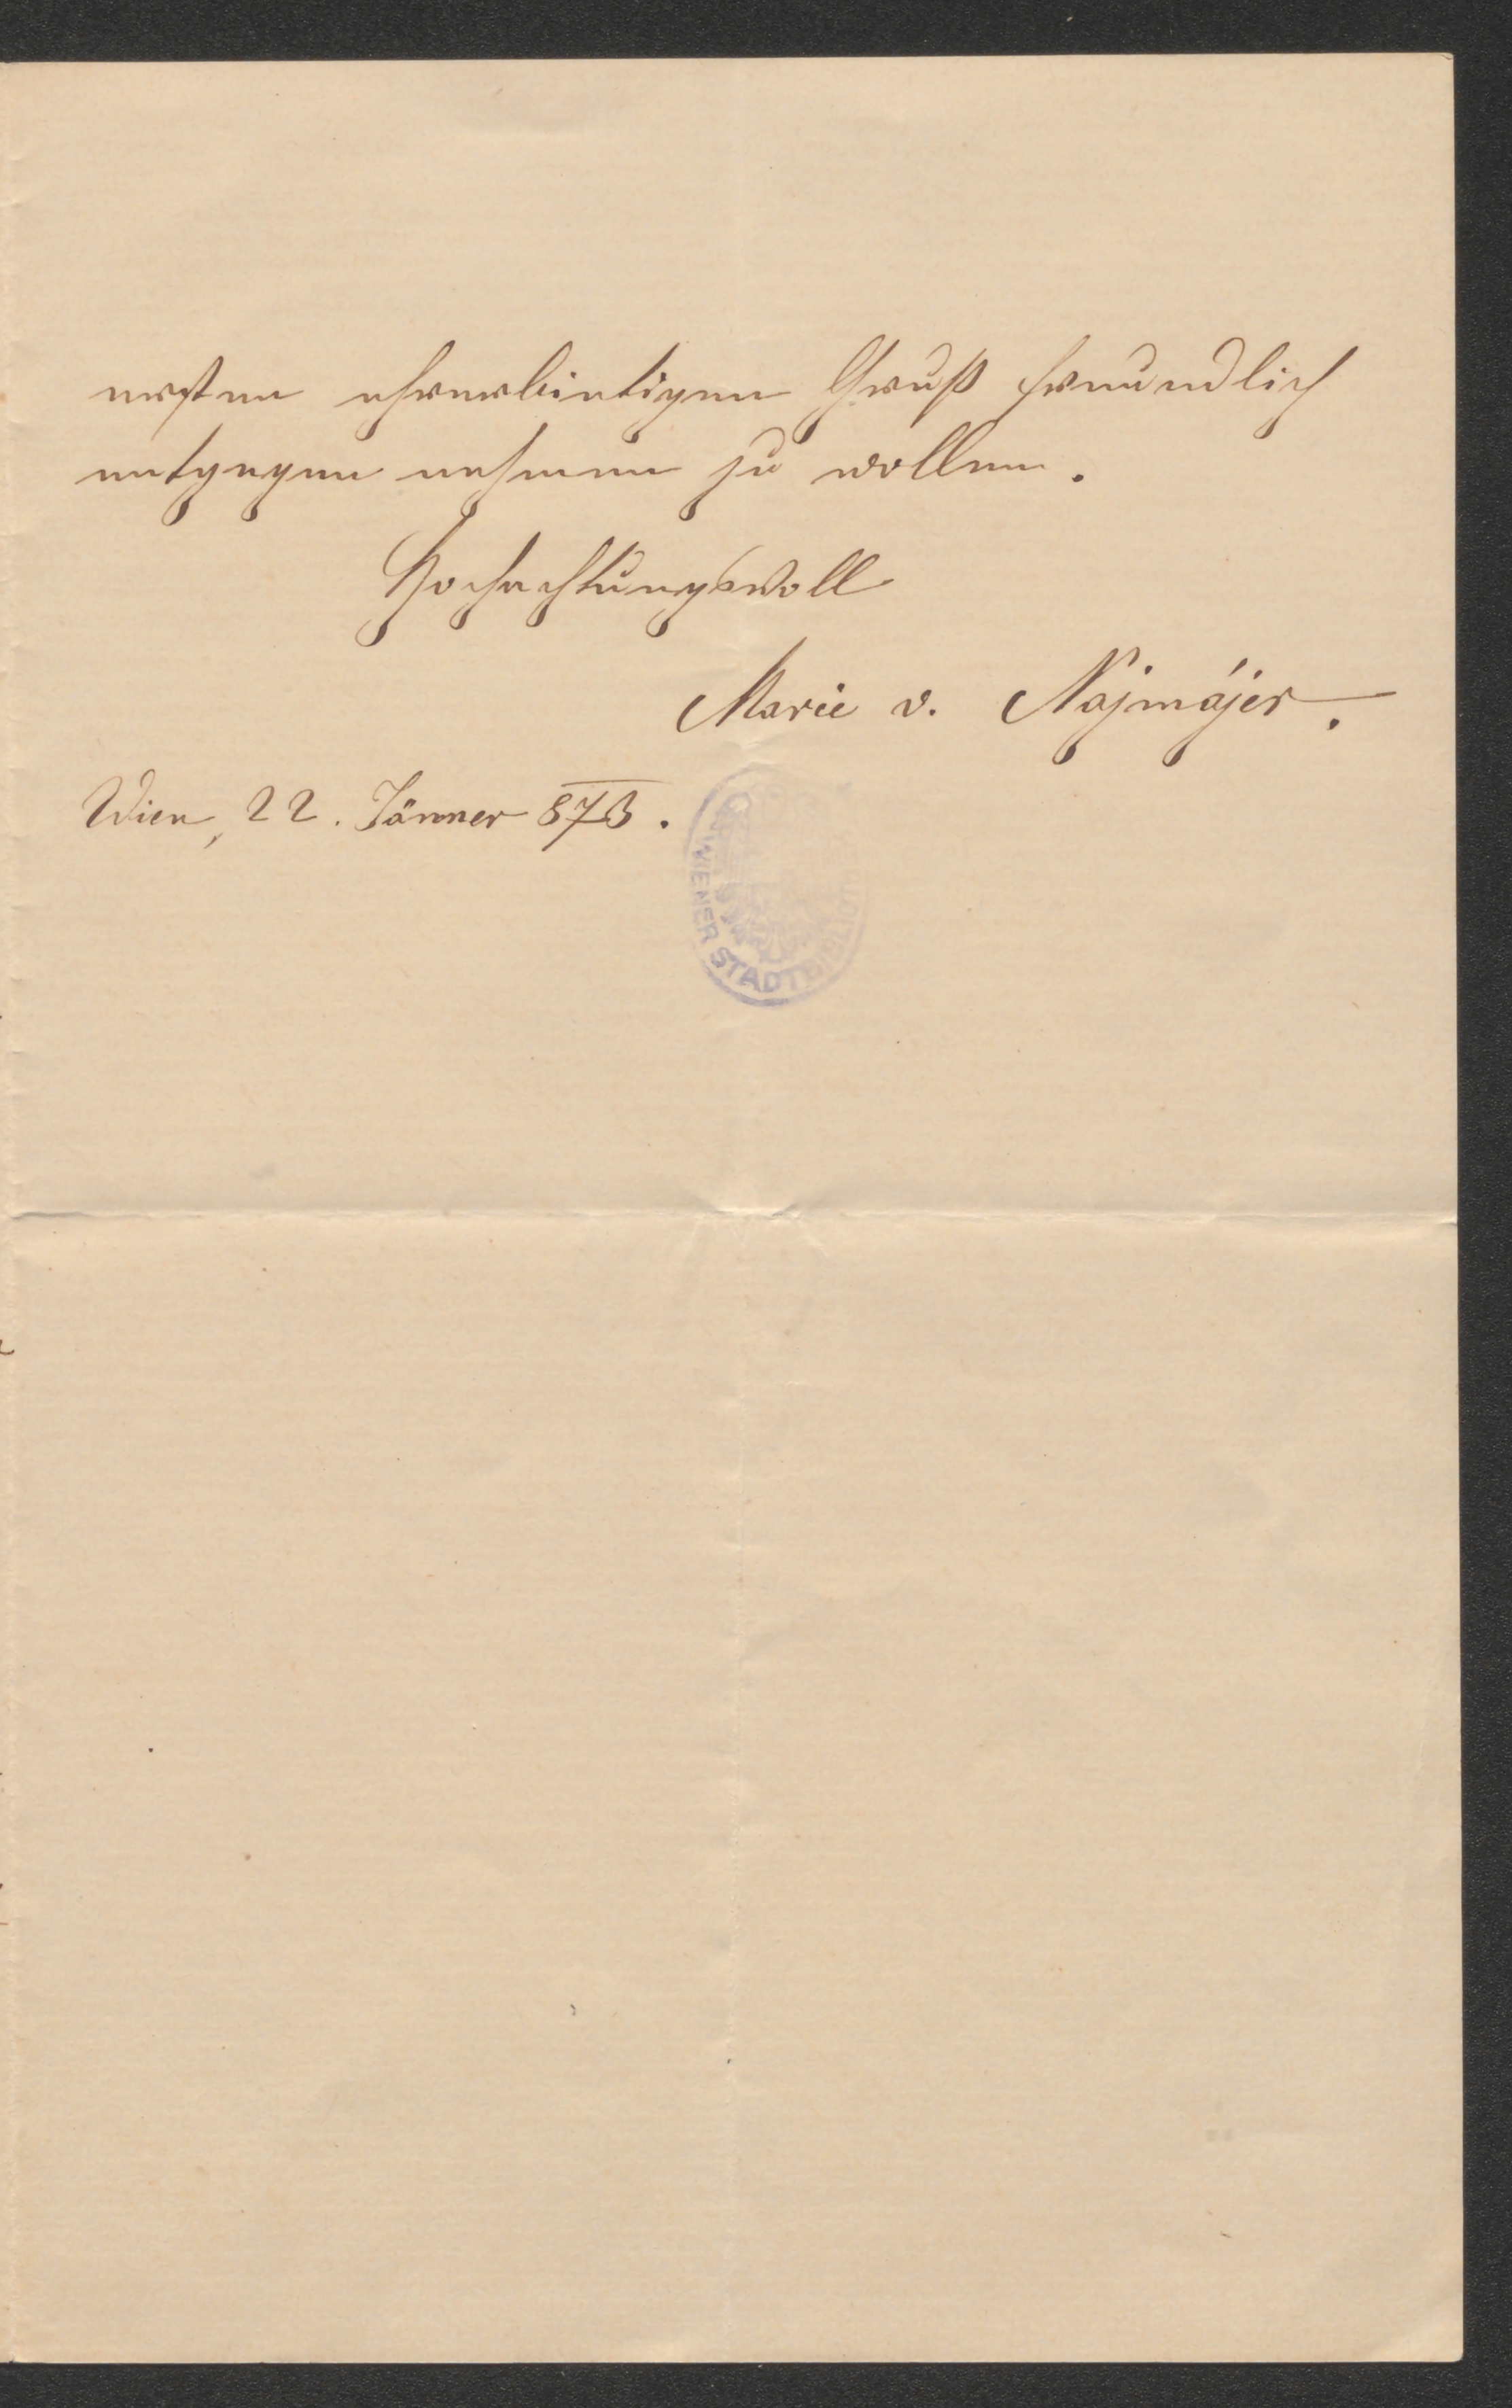 ersten ehrerbietigen Gruß freundlich
entgegen nehmen zu wollen.
Hochachtungsvoll
Marie v. Najmájer.
Wien, 22. Jänner 873.
WIENER STADTBIBLIOTHEK